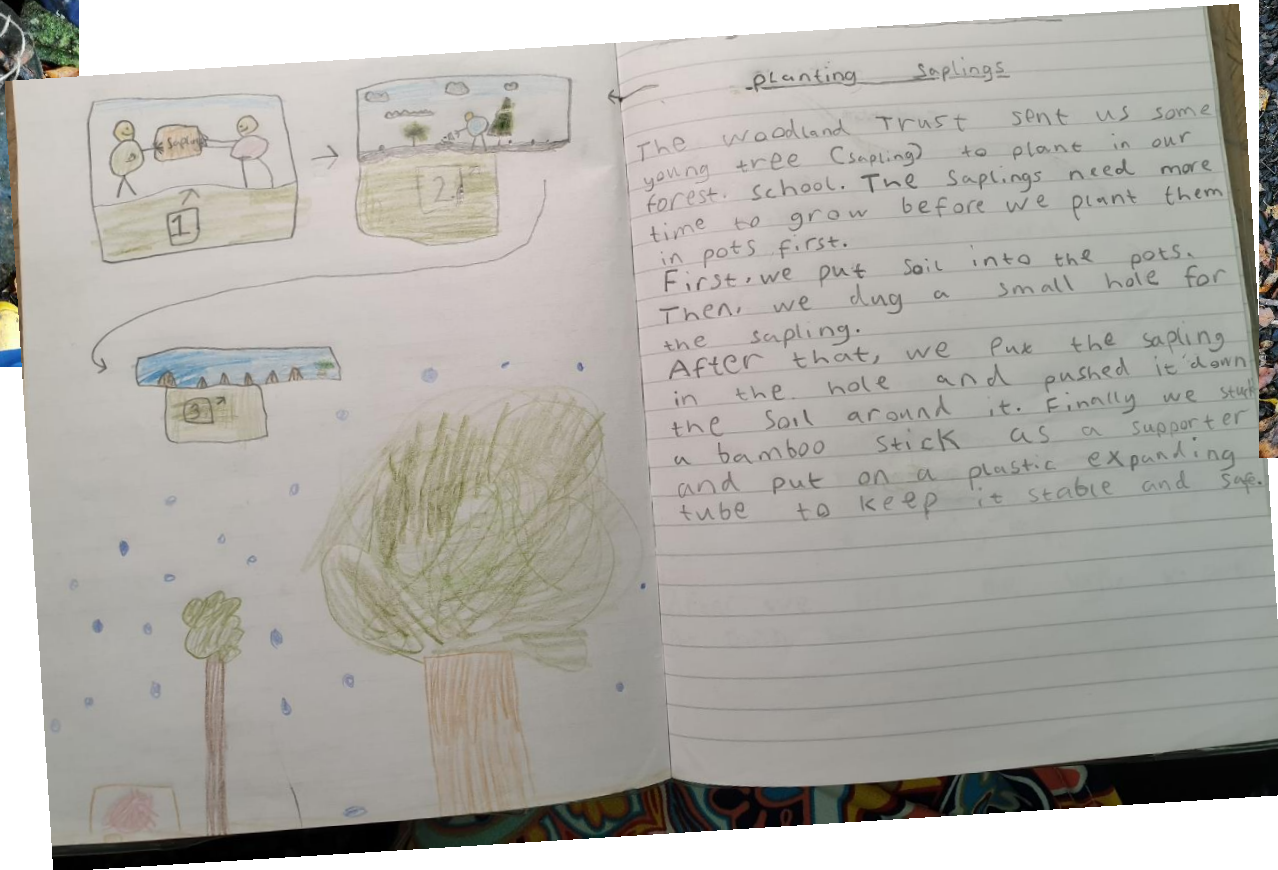 Planting saplings
The Woodland Trust sent us some
young tree (sapling) to plant in our
forest. school. The saplings need more
time to grow before we plant them
in pots first.
First, we put soil into the pots.
Then, we dug a small hole for
the sapling.
After that, we put the sapling
in the hole and pushed it down
the soil around it. Finally we stuck
a bamboo stick as a supporter
and put on a plastic expanding
tube to keep it stable and safe.
Sapling
1
2
3